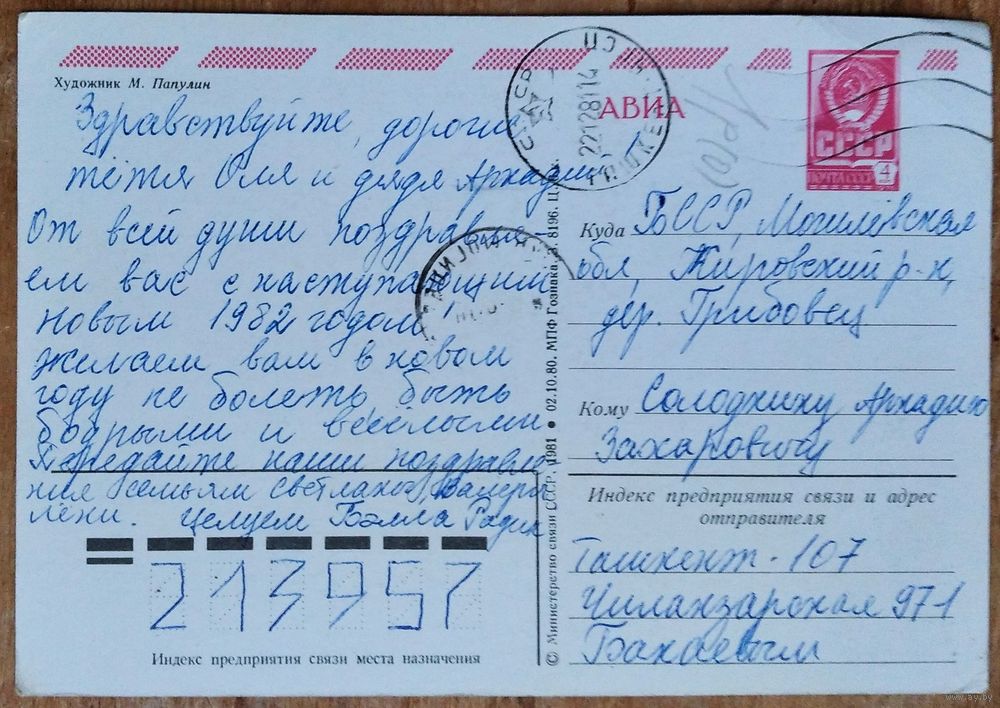 Художник М. Папулин
Здравствуйте, дорогие
тётя Оля и дядя Аркадий!
От всей души поздравля-
ем вас с наступающим
Новым 1982 годом!
Желаем вам в новом
году не болеть, быть
бодрыми и весёлыми
Передайте наши поздравле
ния семьям Светланы, Валеры
Лёни. Целуем Бэлла Радик
213957
Индекс предприятия связи места назначения
© Министерство связи СССР. 1981 • 02.10.80. МПФ Гознака. З. 8196. Ц.
АВИА
СССР
ПОЧТА СССР
4
221281 14
Куда БССР, Могилёвская
обл, Кировский р-н,
дер. Грибовец
Кому Солодкину Аркадию
Захаровичу
Индекс предприятия связи и адрес
отправителя
Ташкент-107
Чиланзарская 97-1
Бакаевым
www.ay.by